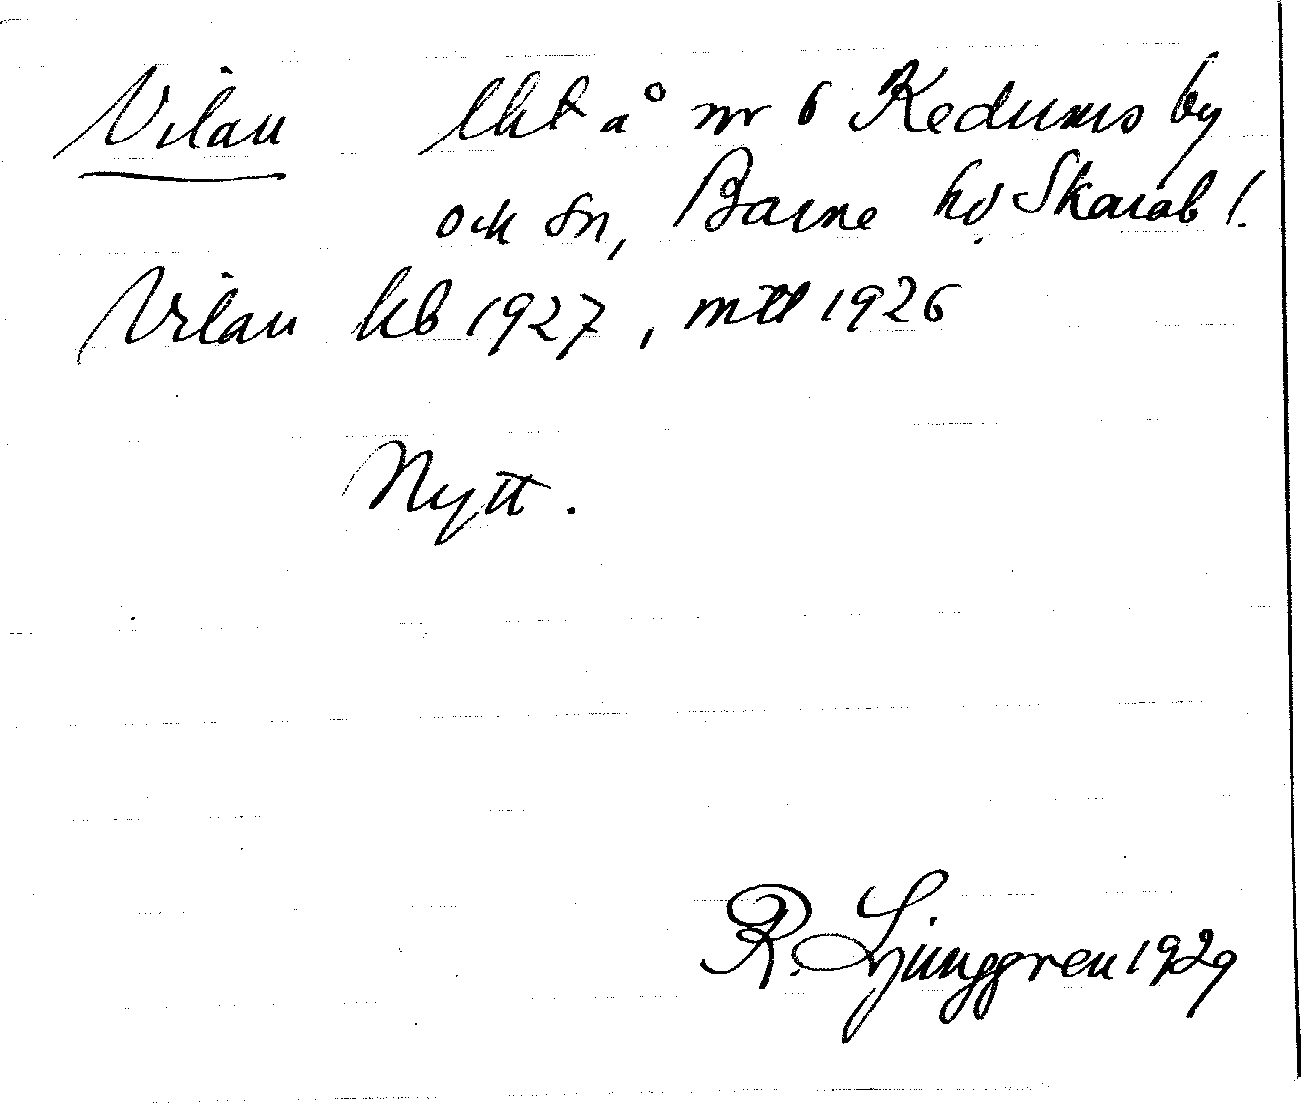 Vilan lht å nr 6 Kedums by
och sn, Barne hd Skarab l.
Vilan kb 1927, mtl 1926
Nytt.
R. Ljunggren 1929